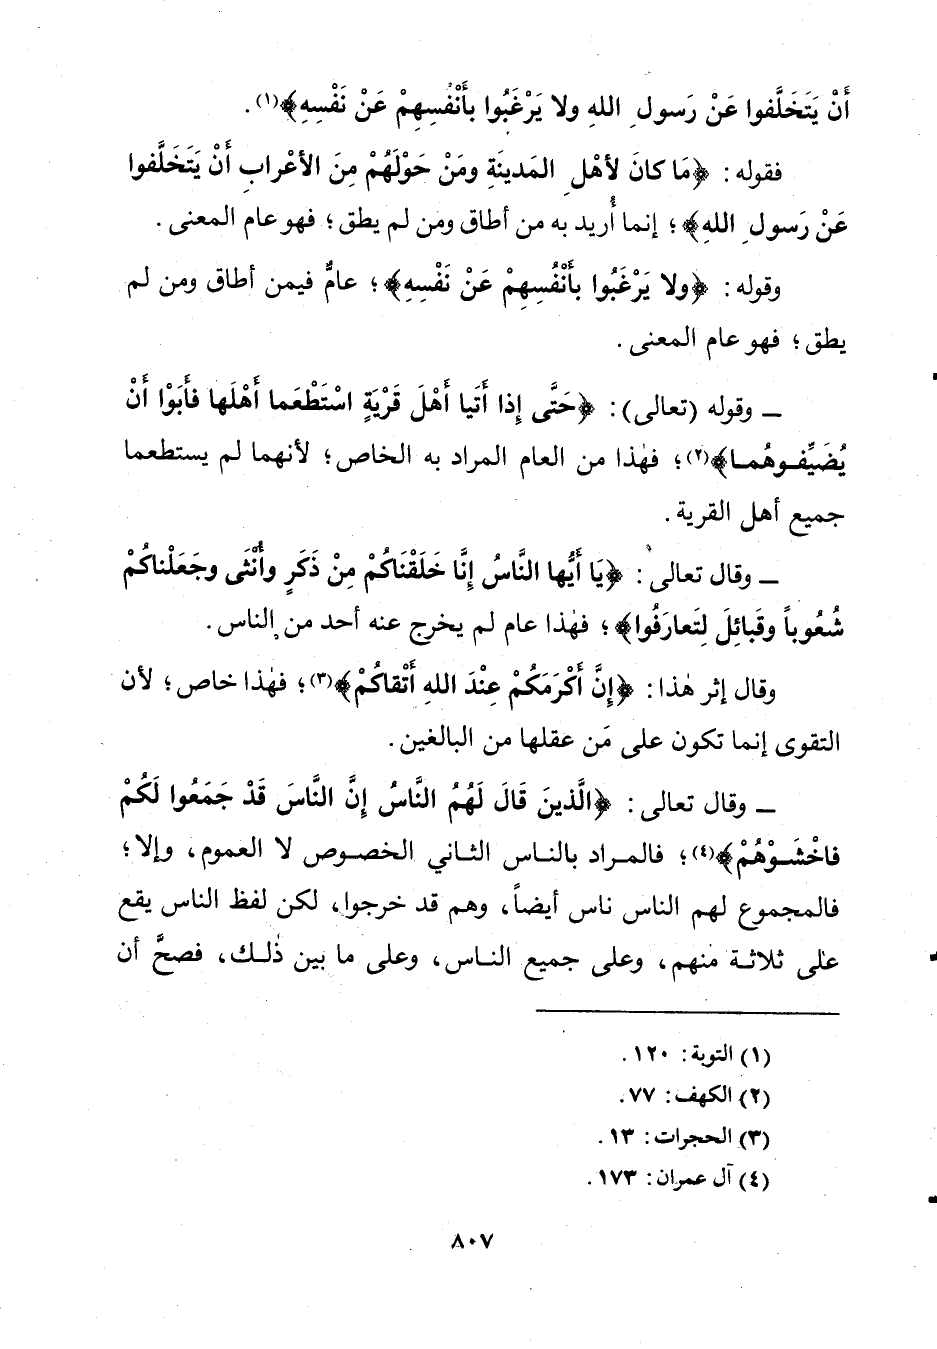 أَنْ يَتَخَلَّفوا عَنْ رَسولِ اللهِ ولا يَرْغَبُوا بأَنْفُسِهِمْ عَنْ نَفْسِهِ﴾(١).
فقوله: ﴿مَا كانَ لأهْلِ المَدينَةِ ومَنْ حَوْلَهُمْ مِنَ الأعْرابِ أَنْ يَتَخَلَّفوا
عَنْ رَسولِ اللهِ﴾؛ إنما أُريد به من أطاق ومن لم يطق؛ فهو عام المعنى.
وقوله: ﴿ولا يَرْغَبُوا بأَنْفُسِهِمْ عَنْ نَفْسِهِ﴾؛ عامٌّ فيمن أطاق ومن لم
يطق؛ فهو عام المعنى.
ــ وقوله (تعالى): ﴿حَتَّى إِذا أَتَيا أَهْلَ قَرْيَةٍ اسْتَطْعَما أَهْلَها فأَبَوْا أَنْ
يُضَيِّفـوهُمـا﴾(٢)؛ فهٰذا من العام المراد به الخاص؛ لأنهما لم يستطعما
جميع أهل القرية.
ــ وقال تعالى: ﴿يَا أَيُّها النَّاسُ إِنَّا خَلَقْنَاكُمْ مِنْ ذَكَرٍ وأُنْثَى وجَعَلْناكُمْ
شُعُوباً وقَبائِلَ لِتَعارَفُوا﴾؛ فهٰذا عام لم يخرج عنه أحد من الناس.
وقال إثر هٰذا: ﴿إِنَّ أَكْرَمَكُمْ عِنْدَ اللهِ أَتْقاكُمْ﴾(٣)؛ فهٰذا خاص؛ لأن
التقوى إنما تكون على مَن عقلها من البالغين.
ــ وقال تعالى: ﴿الَّذينَ قَالَ لَهُمُ النَّاسُ إِنَّ النَّاسَ قَدْ جَمَعُوا لَكُمْ
فاخْشَـوْهُمْ﴾(٤)؛ فالمـراد بالنـاس الثـاني الخصـوص لا العموم، وإلا؛
فالمجموع لهم الناس ناس أيضاً، وهم قد خرجوا، لكن لفظ الناس يقع
على ثلاثـة منهم، وعلى جميع النـاس، وعلى ما بين ذٰلـك، فصحَّ أن
(١) التوبة: ١٢٠.
(٢) الكهف: ٧٧.
(٣) الحجرات: ١٣.
(٤) آل عمران: ١٧٣.
٨٠٧